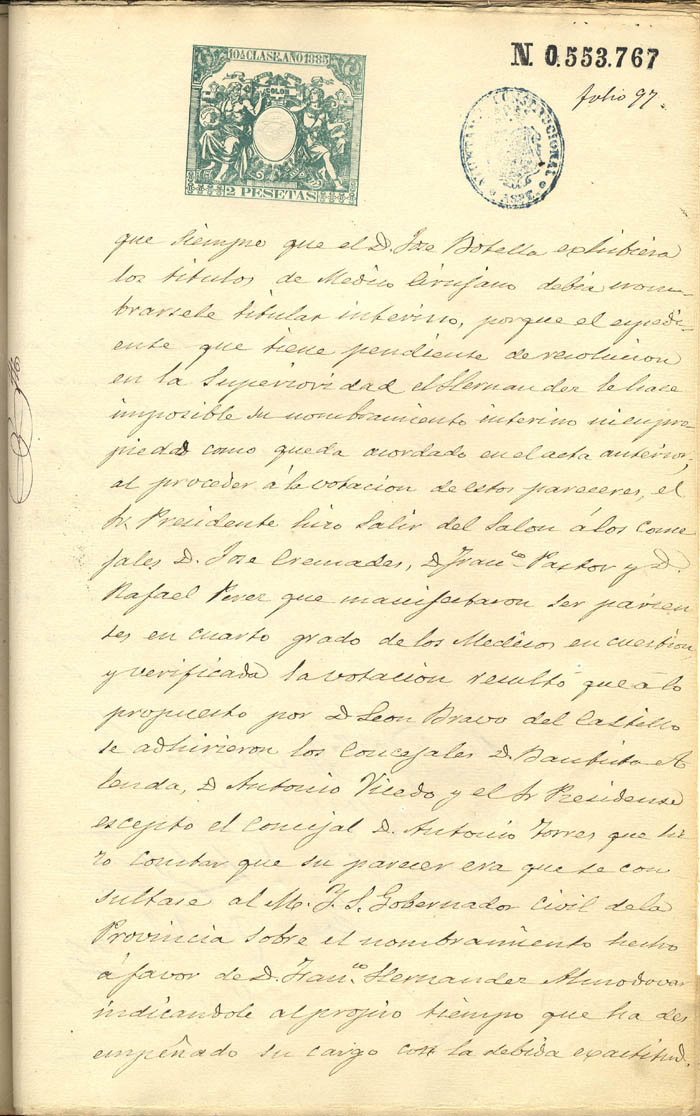 10ª CLASE. AÑO 1885
COLON
2 PESETAS
N. 0.553.767
folio 97.
AYUNTAMIENTO CONSTITUCIONAL
ASPE.
que siempre que el D. Jose Botella exhibiera
los titulos de Medico Cirujano debia nom-
brarsele titular interino, porque el espedi-
ente que tiene pendiente de resolucion
en la Superioridad el Hernandez le hace
imposible su nombramiento interino ni en pro-
piedad como queda acordado en el acta anterior,
al proceder á la votacion de estos pareceres, el
Sr. Presidente hizo salir del Salon á los conce-
jales D. Jose Cremades, D. Fran.co Pastor y D.
Rafael Perez que manifestaron ser parien-
tes en cuarto grado de los Medicos en cuestion,
y verificada la votacion resultó que á lo
propuesto por D. Leon Bravo del Castillo
se adhirieron los Concejales D. Bautista A-
lenda, D. Antonio Vicedo y el Sr Presidente
escepto el Concejal D. Antonio Torres que hi-
zo constar que su parecer era que se con
sultase al M. Y. S. Gobernador Civil de la
Provincia sobre el nombramiento hecho
á favor de D. Fran.co Hernandez Almodovar
indicandole al propio tiempo que ha des
empeñado su cargo con la debida exactitud.